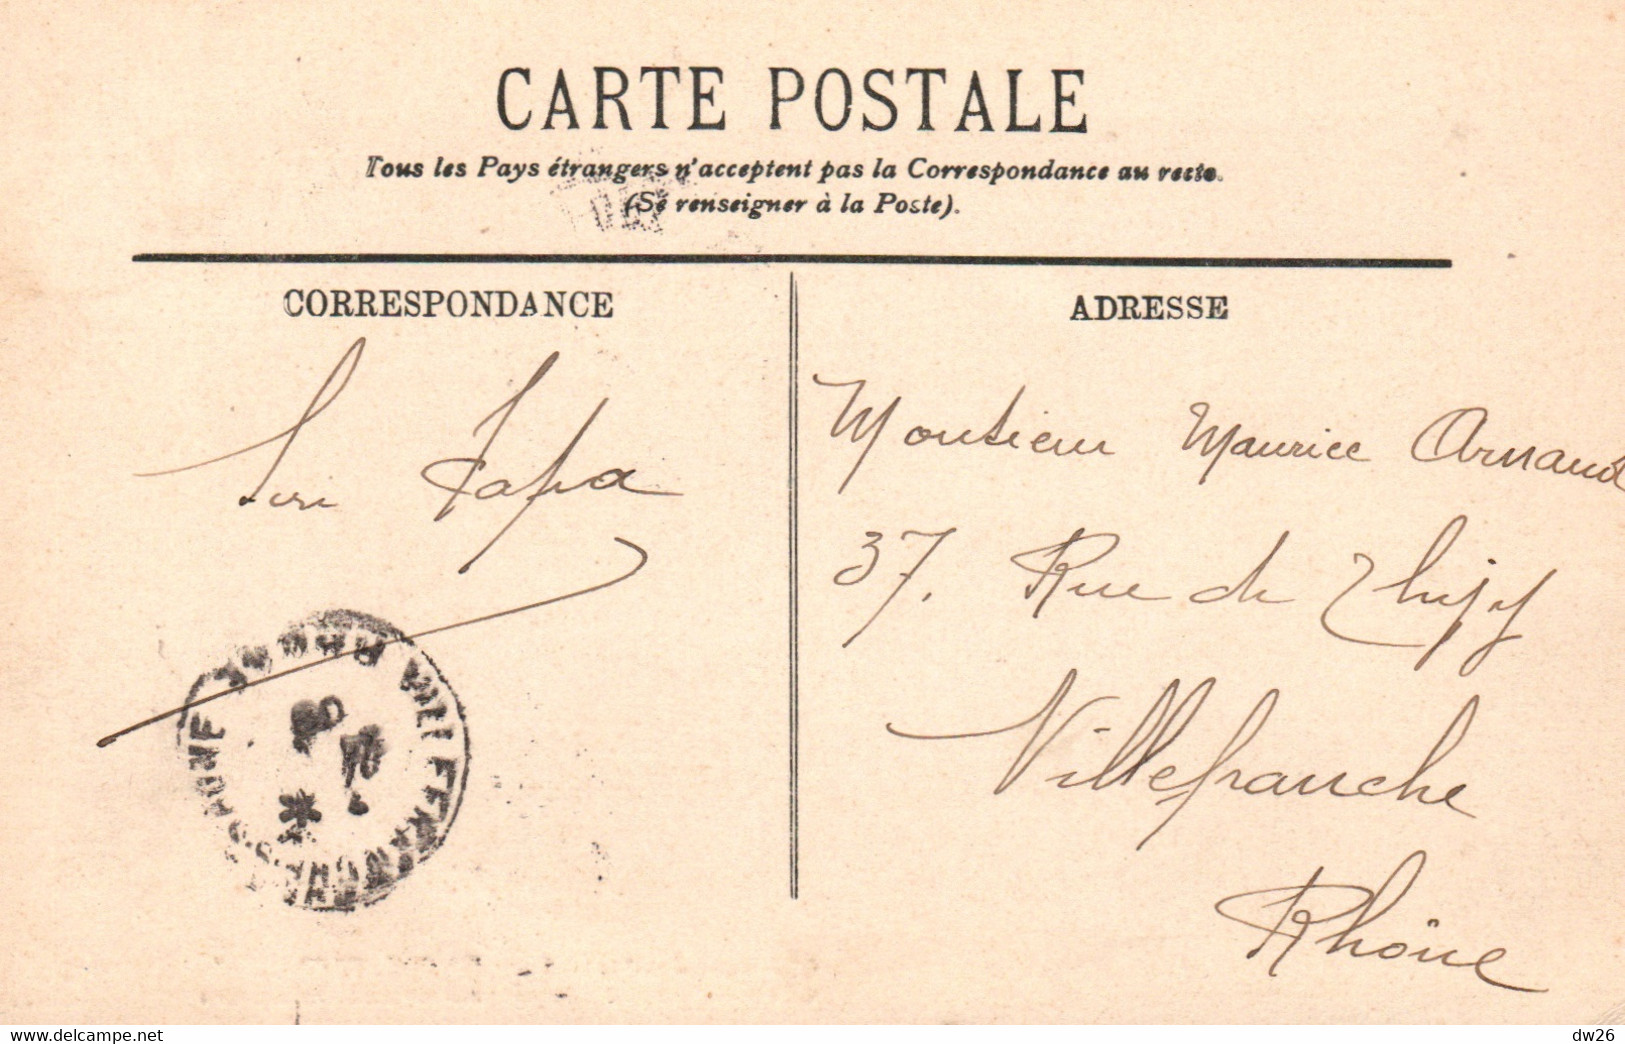 CARTE POSTALE
Tous les Pays étrangers n'acceptent pas la Correspondance au recto.
(Se renseigner à la Poste).
CORRESPONDANCE
ADRESSE
Papa
Monsieur Maurice Arnaud
37. Rue de Thizy
Villefranche
Rhône
VILLEFRANCHE-S-SAONE RHONE
© delcampe.net
dw26